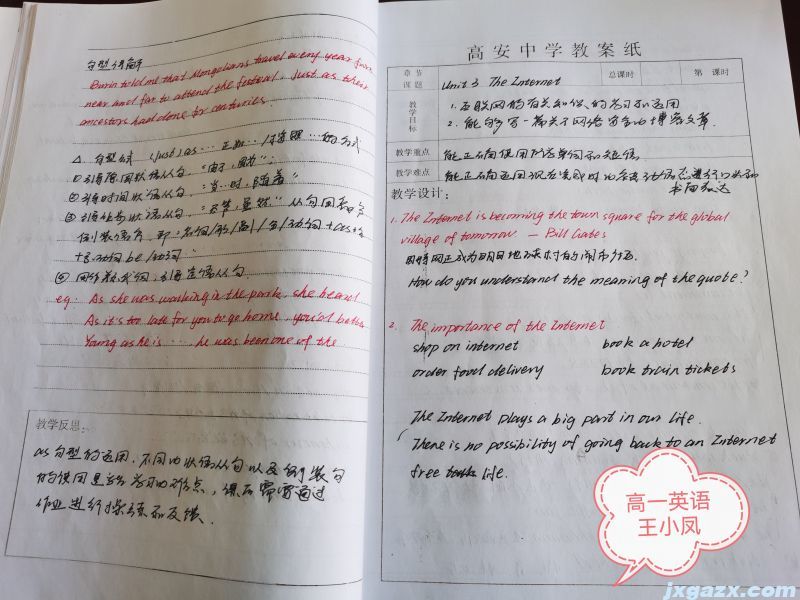 句型讲解
Burin told me that Mongolians travel every year from
near and far to attend the festival, just as their
ancestors had done for centuries.
△ 句型公式 (just) as … 正如 …/按照 …的方式
①引导原因状语从句，"由于，因为"；
②引导时间状语从句，"当…时，随着"
③引导让步状语从句，"尽管，虽然" 从句用部分
倒装语序，即：名词/形/副/动词 + as + 主
+ 动词 be/动词
④用作关系代词，引导定语从句
eg: As she was walking in the park, she heard
As it's too late for you to go home, you'd better
Young as he is ……, he was been one of the
教学反思：
as句型的运用，不同的状语从句以及倒装句
的使用是学习的难点，课后需要通过
作业进行操练和反馈.
高安中学教案纸
章节
课题
Unit 3 The Internet
总课时
第 课时
教学目标
1. 互联网的有关知识的学习和运用
2. 能够写一篇关于网络安全的博客文章.
教学重点
能正确使用所学单词和短语.
教学难点
能正确运用现在完成时的被动语态进行口头和
书面表达
教学设计：
1. The Internet is becoming the town square for the global
village of tomorrow — Bill Gates
因特网正成为明日地球村的闹市街区.
How do you understand the meaning of the quote?
2. The importance of the Internet
shop on internet book a hotel
order food delivery book train tickets
The Internet plays a big part in our life.
There is no possibility of going back to an Internet
free life.
高一英语
王小凤
jxgazx.com